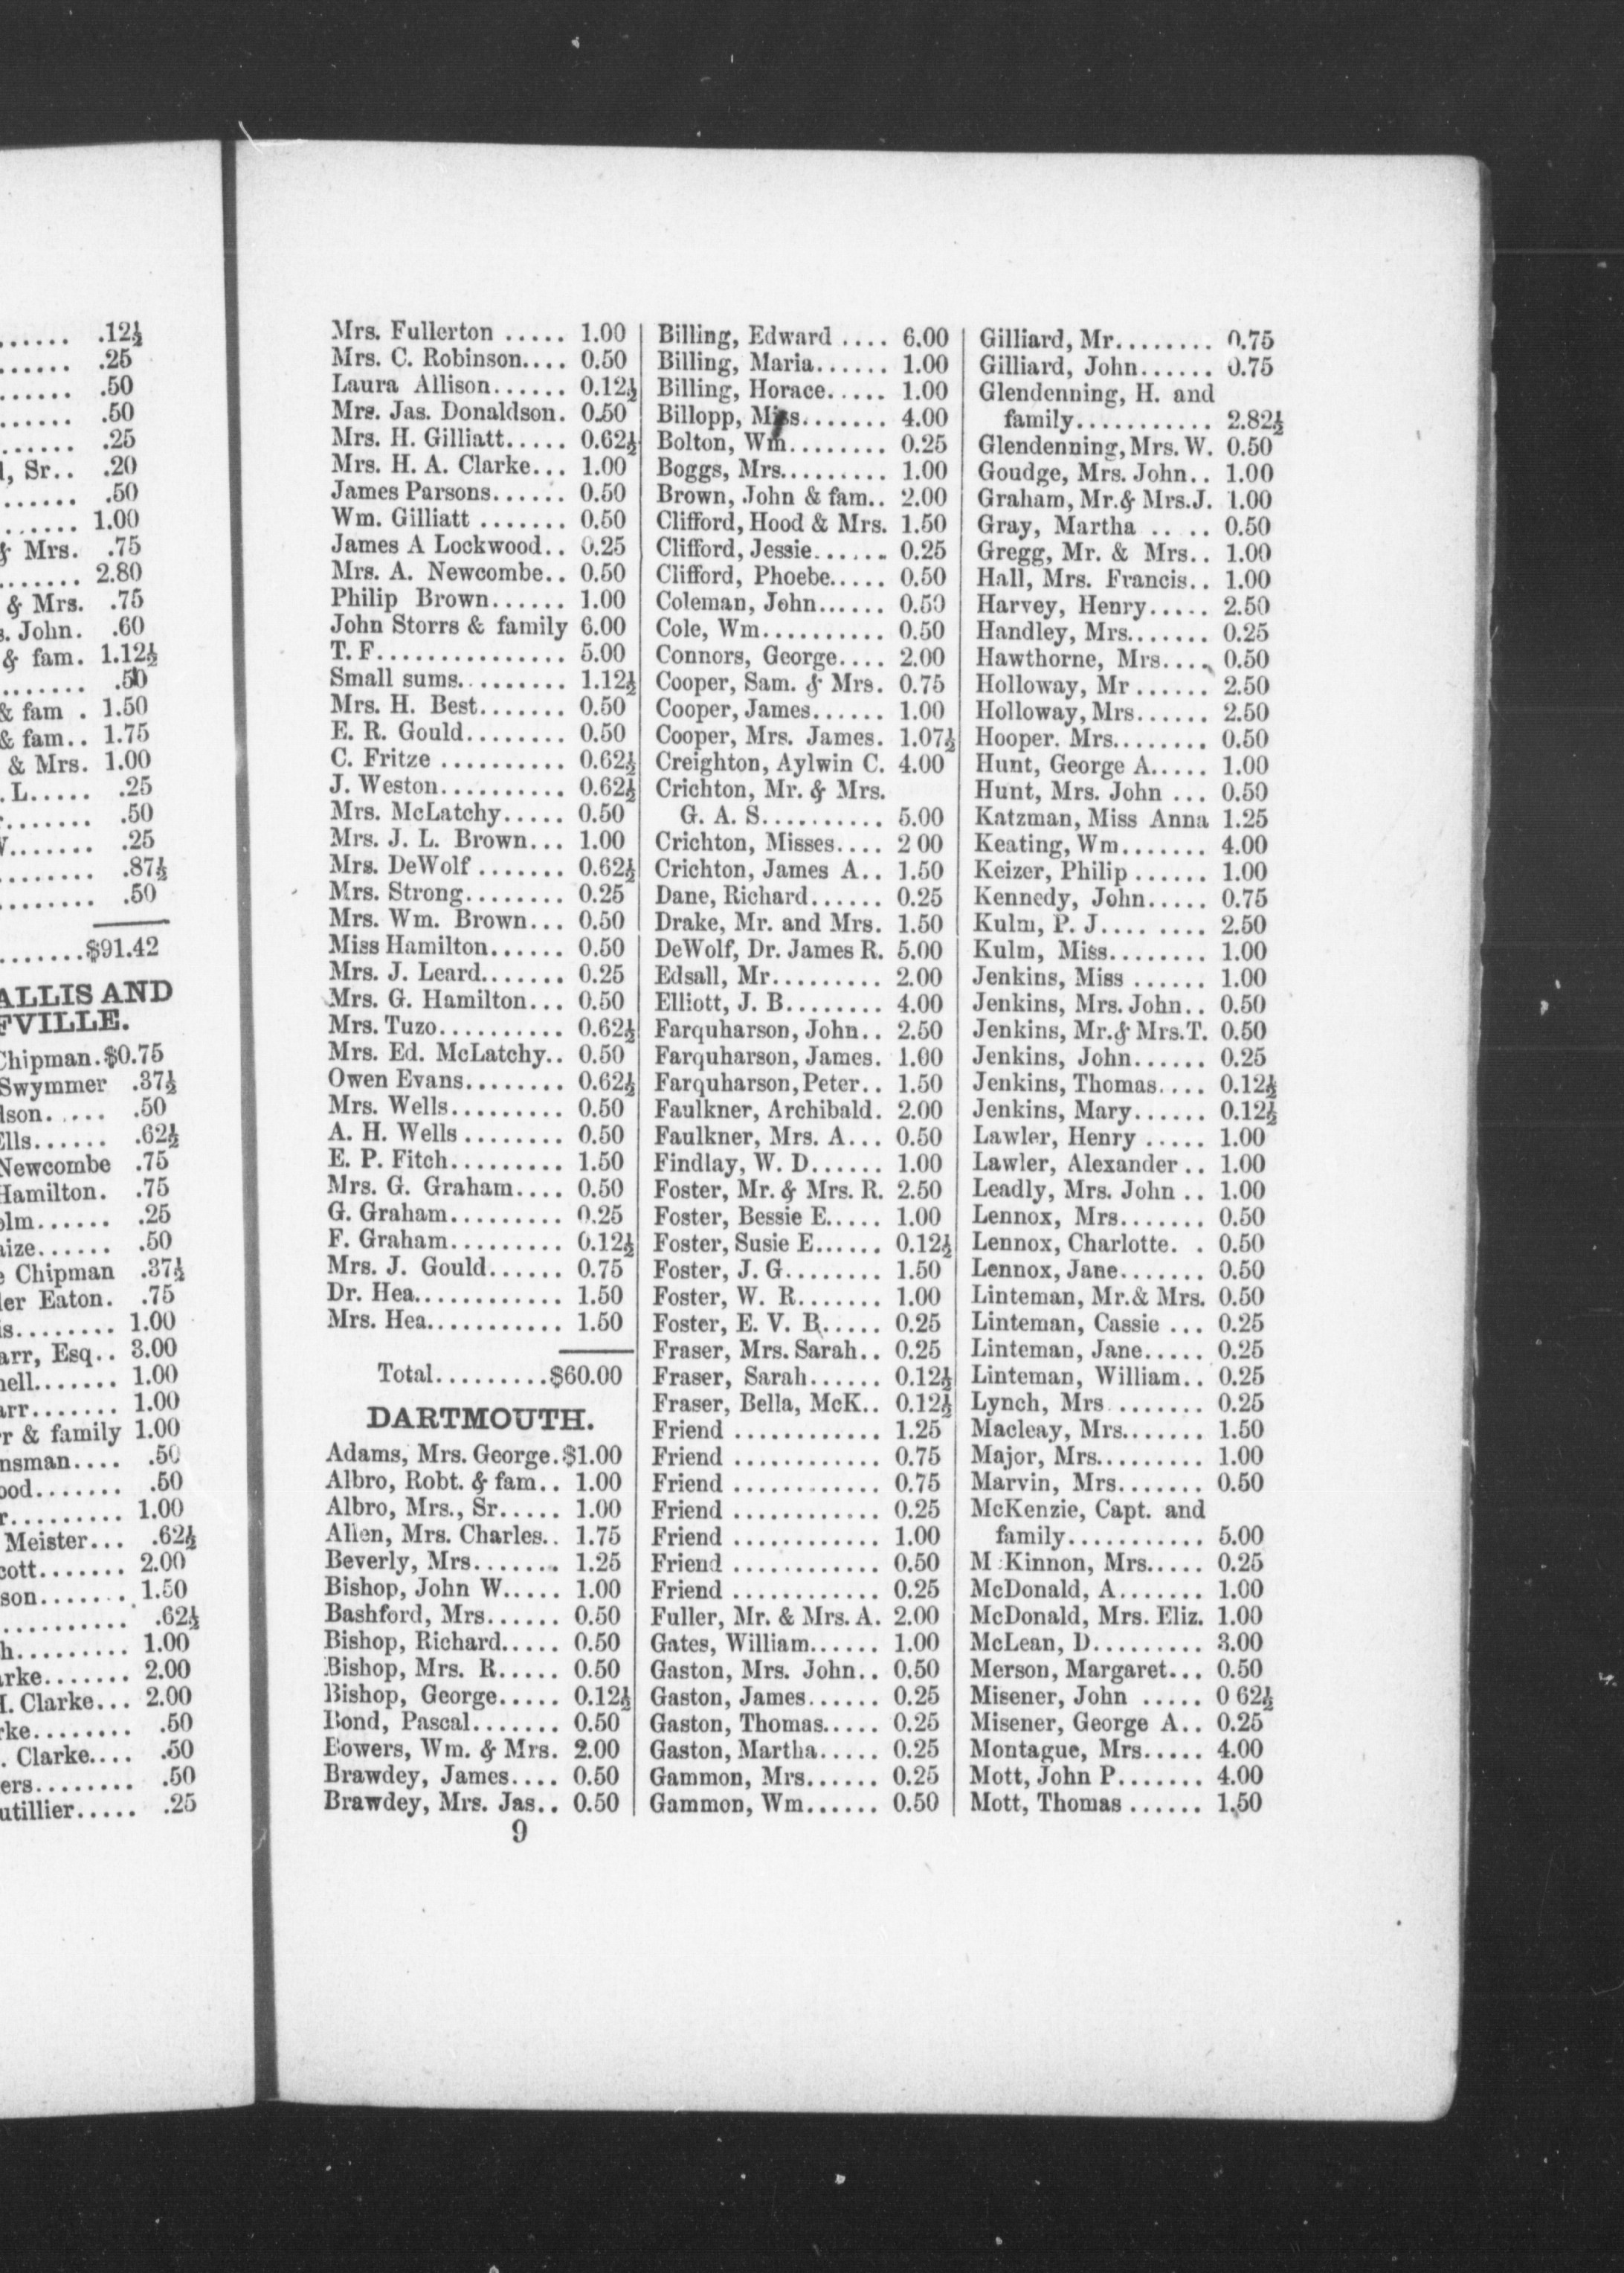 ...... .12½
...... .25
...... .50
...... .50
...... .25
, Sr.. .20
...... .50
...... 1.00
& Mrs. .75
....... 2.80
& Mrs. .75
. John. .60
& fam. 1.12½
....... .50
& fam . 1.50
& fam.. 1.75
& Mrs. 1.00
. L..... .25
....... .50
....... .25
........ .87½
........ .50
.......$91.42
ALLIS AND
FVILLE.
Chipman.$0.75
Swymmer .37½
lson..... .50
Ells...... .62½
Newcombe .75
Hamilton. .75
olm...... .25
aize...... .50
e Chipman .37½
ler Eaton. .75
is........ 1.00
arr, Esq.. 3.00
nell....... 1.00
arr....... 1.00
r & family 1.00
nsman.... .50
ood....... .50
r......... 1.00
Meister... .62½
cott....... 2.00
son....... 1.50
.......... .62½
h......... 1.00
arke....... 2.00
H. Clarke... 2.00
rke........ .50
. Clarke.... .50
ers........ .50
utillier..... .25
Mrs. Fullerton ..... 1.00
Mrs. C. Robinson.... 0.50
Laura Allison...... 0.12½
Mrs. Jas. Donaldson. 0.50
Mrs. H. Gilliatt..... 0.62½
Mrs. H. A. Clarke... 1.00
James Parsons...... 0.50
Wm. Gilliatt ....... 0.50
James A Lockwood.. 0.25
Mrs. A. Newcombe.. 0.50
Philip Brown...... 1.00
John Storrs & family 6.00
T. F............... 5.00
Small sums......... 1.12½
Mrs. H. Best....... 0.50
E. R. Gould........ 0.50
C. Fritze .......... 0.62½
J. Weston.......... 0.62½
Mrs. McLatchy..... 0.50
Mrs. J. L. Brown... 1.00
Mrs. DeWolf ....... 0.62½
Mrs. Strong........ 0.25
Mrs. Wm. Brown... 0.50
Miss Hamilton...... 0.50
Mrs. J. Leard....... 0.25
Mrs. G. Hamilton... 0.50
Mrs. Tuzo.......... 0.62½
Mrs. Ed. McLatchy.. 0.50
Owen Evans........ 0.62½
Mrs. Wells......... 0.50
A. H. Wells ........ 0.50
E. P. Fitch......... 1.50
Mrs. G. Graham.... 0.50
G. Graham......... 0.25
F. Graham......... 0.12½
Mrs. J. Gould...... 0.75
Dr. Hea............ 1.50
Mrs. Hea........... 1.50
Total.........$60.00
DARTMOUTH.
Adams, Mrs. George.$1.00
Albro, Robt. & fam.. 1.00
Albro, Mrs., Sr..... 1.00
Allen, Mrs. Charles.. 1.75
Beverly, Mrs....... 1.25
Bishop, John W..... 1.00
Bashford, Mrs...... 0.50
Bishop, Richard..... 0.50
Bishop, Mrs. R..... 0.50
Bishop, George..... 0.12½
Bond, Pascal....... 0.50
Bowers, Wm. & Mrs. 2.00
Brawdey, James.... 0.50
Brawdey, Mrs. Jas.. 0.50
Billing, Edward .... 6.00
Billing, Maria...... 1.00
Billing, Horace..... 1.00
Billopp, Miss....... 4.00
Bolton, Wm........ 0.25
Boggs, Mrs......... 1.00
Brown, John & fam.. 2.00
Clifford, Hood & Mrs. 1.50
Clifford, Jessie...... 0.25
Clifford, Phoebe..... 0.50
Coleman, John...... 0.50
Cole, Wm.......... 0.50
Connors, George.... 2.00
Cooper, Sam. & Mrs. 0.75
Cooper, James...... 1.00
Cooper, Mrs. James. 1.07½
Creighton, Aylwin C. 4.00
Crichton, Mr. & Mrs.
G. A. S.......... 5.00
Crichton, Misses.... 2 00
Crichton, James A.. 1.50
Dane, Richard...... 0.25
Drake, Mr. and Mrs. 1.50
DeWolf, Dr. James R. 5.00
Edsall, Mr......... 2.00
Elliott, J. B........ 4.00
Farquharson, John.. 2.50
Farquharson, James. 1.00
Farquharson, Peter.. 1.50
Faulkner, Archibald. 2.00
Faulkner, Mrs. A... 0.50
Findlay, W. D...... 1.00
Foster, Mr. & Mrs. R. 2.50
Foster, Bessie E..... 1.00
Foster, Susie E...... 0.12½
Foster, J. G........ 1.50
Foster, W. R....... 1.00
Foster, E. V. B..... 0.25
Fraser, Mrs. Sarah.. 0.25
Fraser, Sarah...... 0.12½
Fraser, Bella, McK.. 0.12½
Friend ............ 1.25
Friend ............ 0.75
Friend ............ 0.75
Friend ............ 0.25
Friend ............ 1.00
Friend ............ 0.50
Friend ............ 0.25
Fuller, Mr. & Mrs. A. 2.00
Gates, William...... 1.00
Gaston, Mrs. John.. 0.50
Gaston, James...... 0.25
Gaston, Thomas..... 0.25
Gaston, Martha..... 0.25
Gammon, Mrs...... 0.25
Gammon, Wm...... 0.50
Gilliard, Mr........ 0.75
Gilliard, John...... 0.75
Glendenning, H. and
family........... 2.82½
Glendenning, Mrs. W. 0.50
Goudge, Mrs. John.. 1.00
Graham, Mr.& Mrs.J. 1.00
Gray, Martha .. .. 0.50
Gregg, Mr. & Mrs.. 1.00
Hall, Mrs. Francis.. 1.00
Harvey, Henry..... 2.50
Handley, Mrs....... 0.25
Hawthorne, Mrs.... 0.50
Holloway, Mr ...... 2.50
Holloway, Mrs...... 2.50
Hooper. Mrs........ 0.50
Hunt, George A..... 1.00
Hunt, Mrs. John ... 0.50
Katzman, Miss Anna 1.25
Keating, Wm....... 4.00
Keizer, Philip ...... 1.00
Kennedy, John..... 0.75
Kulm, P. J.... .... 2.50
Kulm, Miss........ 1.00
Jenkins, Miss ...... 1.00
Jenkins, Mrs. John.. 0.50
Jenkins, Mr.& Mrs.T. 0.50
Jenkins, John...... 0.25
Jenkins, Thomas.... 0.12½
Jenkins, Mary...... 0.12½
Lawler, Henry ..... 1.00
Lawler, Alexander .. 1.00
Leadly, Mrs. John .. 1.00
Lennox, Mrs....... 0.50
Lennox, Charlotte. . 0.50
Lennox, Jane....... 0.50
Linteman, Mr.& Mrs. 0.50
Linteman, Cassie ... 0.25
Linteman, Jane..... 0.25
Linteman, William.. 0.25
Lynch, Mrs ....... 0.25
Macleay, Mrs....... 1.50
Major, Mrs......... 1.00
Marvin, Mrs....... 0.50
McKenzie, Capt. and
family........... 5.00
M Kinnon, Mrs..... 0.25
McDonald, A....... 1.00
McDonald, Mrs. Eliz. 1.00
McLean, D......... 3.00
Merson, Margaret... 0.50
Misener, John ..... 0 62½
Misener, George A.. 0.25
Montague, Mrs..... 4.00
Mott, John P....... 4.00
Mott, Thomas ...... 1.50
9